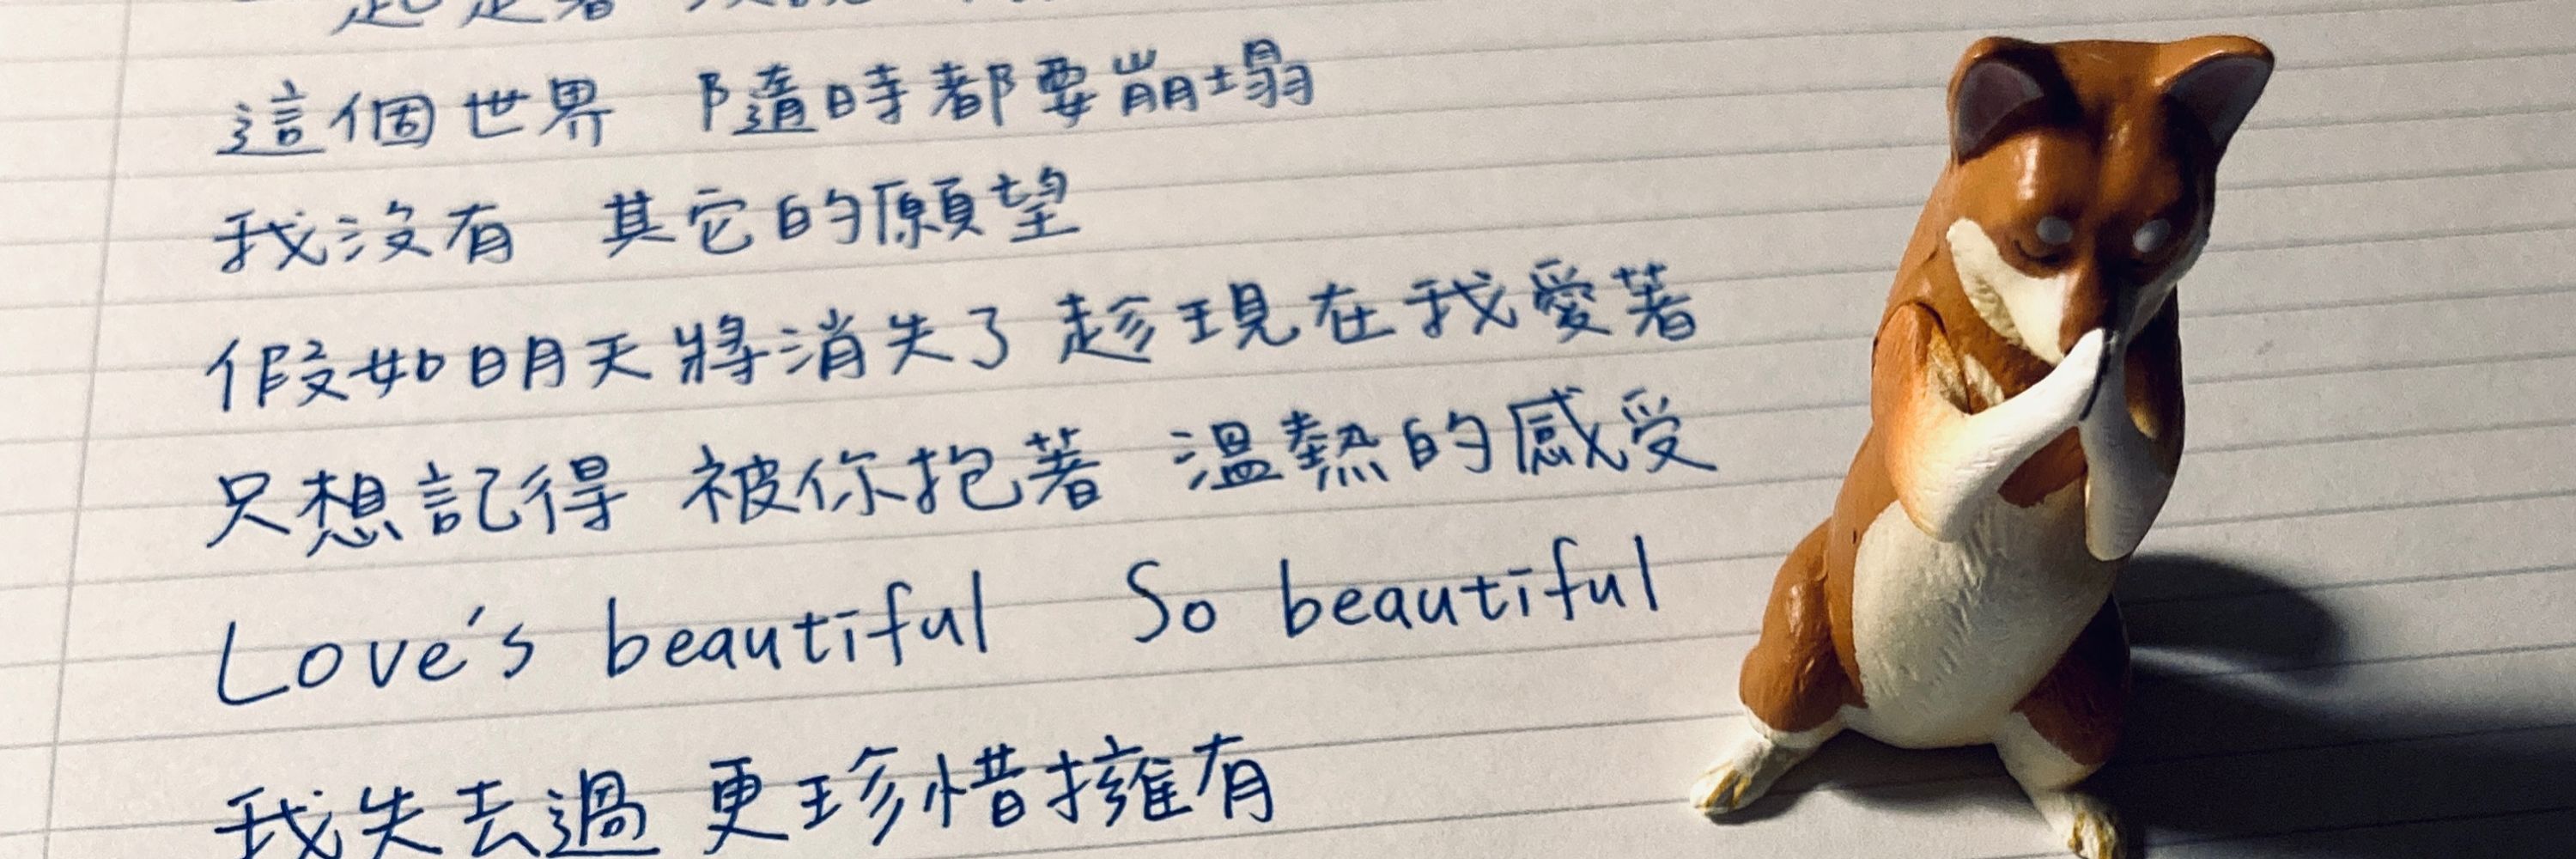 這個世界 隨時都要崩塌
我沒有 其它的願望
假如明天將消失了 趁現在我愛著
只想記得 被你抱著 溫熱的感受
Love's beautiful So beautiful
我失去過 更珍惜擁有